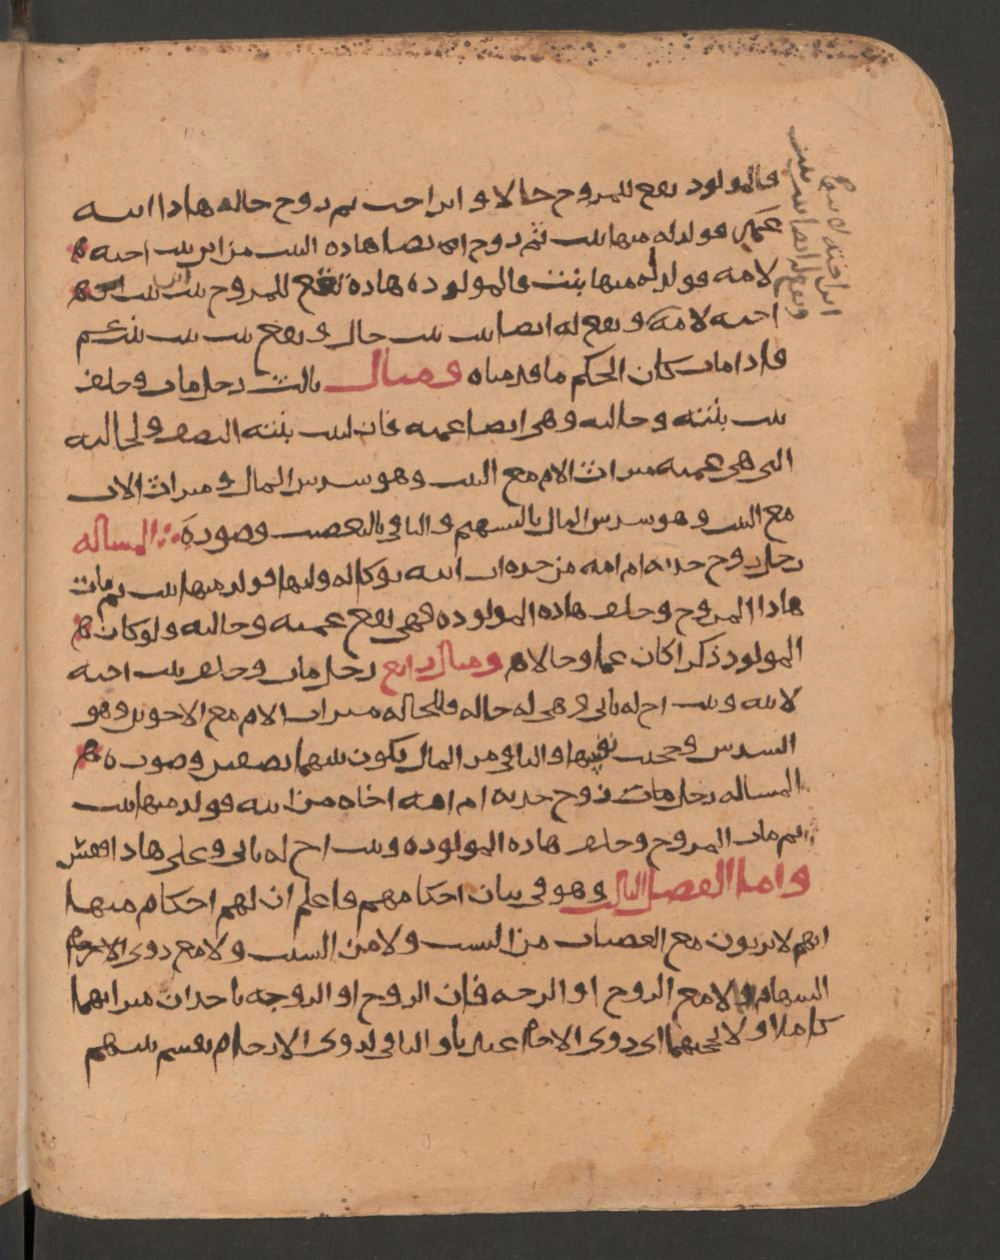 فالمولود يقع للمزوج خالا و ابن اخت ثم زوج خاله هاذا ابنه
عمي فولد له منها بنت ثم زوج ايضا هاذه البنت من ابن بنت اخيه
لامه فولد له منها بنت فالمولوده هاذه تقع للمزوج بنت بنت
اخيه لامه و يقع له ايضا بنت بنت خال و يقع بنت بنت عم
فاذا مات كان الحكم ما قدمناه ومثال ثالث رجل مات وخلف
بنت بنته وخالته وهي ايضا عمته فان لبنت بنته النصف ولخالته
التي هي عمته ميراث الام مع البنت وهو سدس المال و ميراث الاب
مع البنت وهو سدس المال بالسهم و الباقي بالتعصيب وصورة المساله
رجل زوج جدته ام امه من جده اب ابيه بوكاله وليها فولد منها بنت ثم مات
هاذا المزوج وخلف هاذه المولوده فهي تقع عمته وخالته ولو كان
المولود ذكرا كان عما وخالا ومثال رابع رجل مات وخلف بنت اخيه
لابيه وبنت اخ له ثاني وهي له خاله فللخاله ميراث الام مع الاخوين وهو
السدس والباقي من المال يكون بينهما نصفين وصورة
المساله رجل مات زوج جدته ام امه اخاه من ابيه فولد منها بنت
ثم مات المزوج وخلف هاذه المولوده وبنت اخ له ثاني وعلى هاذا فقس
واما الفصل الثالث وهو في بيان احكامهم فاعلم ان لهم احكام منها
انهم لا يرثون مع العصبات من النسب ولا من السبب ولا مع ذوي
السهام الا مع الزوج او الزوجه فان الزوج او الزوجه ياخذان ميراثهما
كاملا ولا يحجبهما ذوي الارحام والباقي لذوي الارحام يقسم بينهم
ابن اخته لابيه